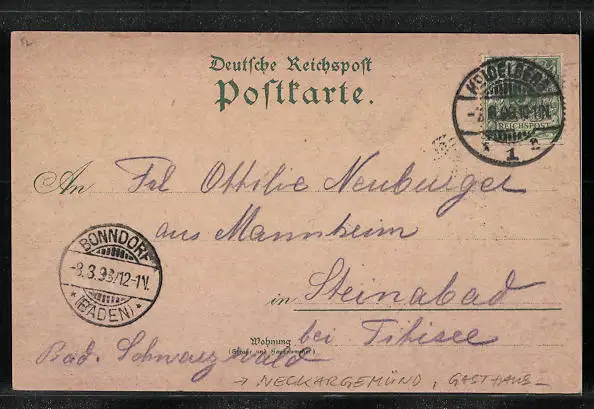 Deutsche Reichspost
Postkarte.
HEIDELBERG
REICHSPOST
1
An Frl Ottilie Neuburger
aus Mannheim
BONNDORF
-8.8.98/12-1N.
*(BADEN)*
in Steinabad
Wohnung
(Straße und Hausnummer)
bei Titisee
Bad. Schwarzwald
→ NECKARGEMÜND, GASTHAUS-